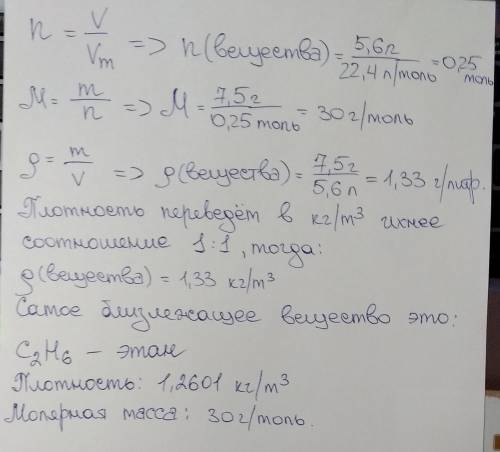 n = V/Vm => n(вещества) = 5,6л/22,4 л/моль = 0,25 моль
M = m/n => M = 7,5г/0,25 моль = 30 г/моль
ρ = m/V => ρ(вещества) = 7,5г/5,6л = 1,33 г/
Плотность переведём в кг/m³ ихнее
соотношение 1:1, тогда:
ρ(вещества) = 1,33 кг/m³
Самое близлежащее вещество это:
C₂H₆ – этан
Плотность: 1,2601 кг/m³
Молярная масса: 30г/моль.